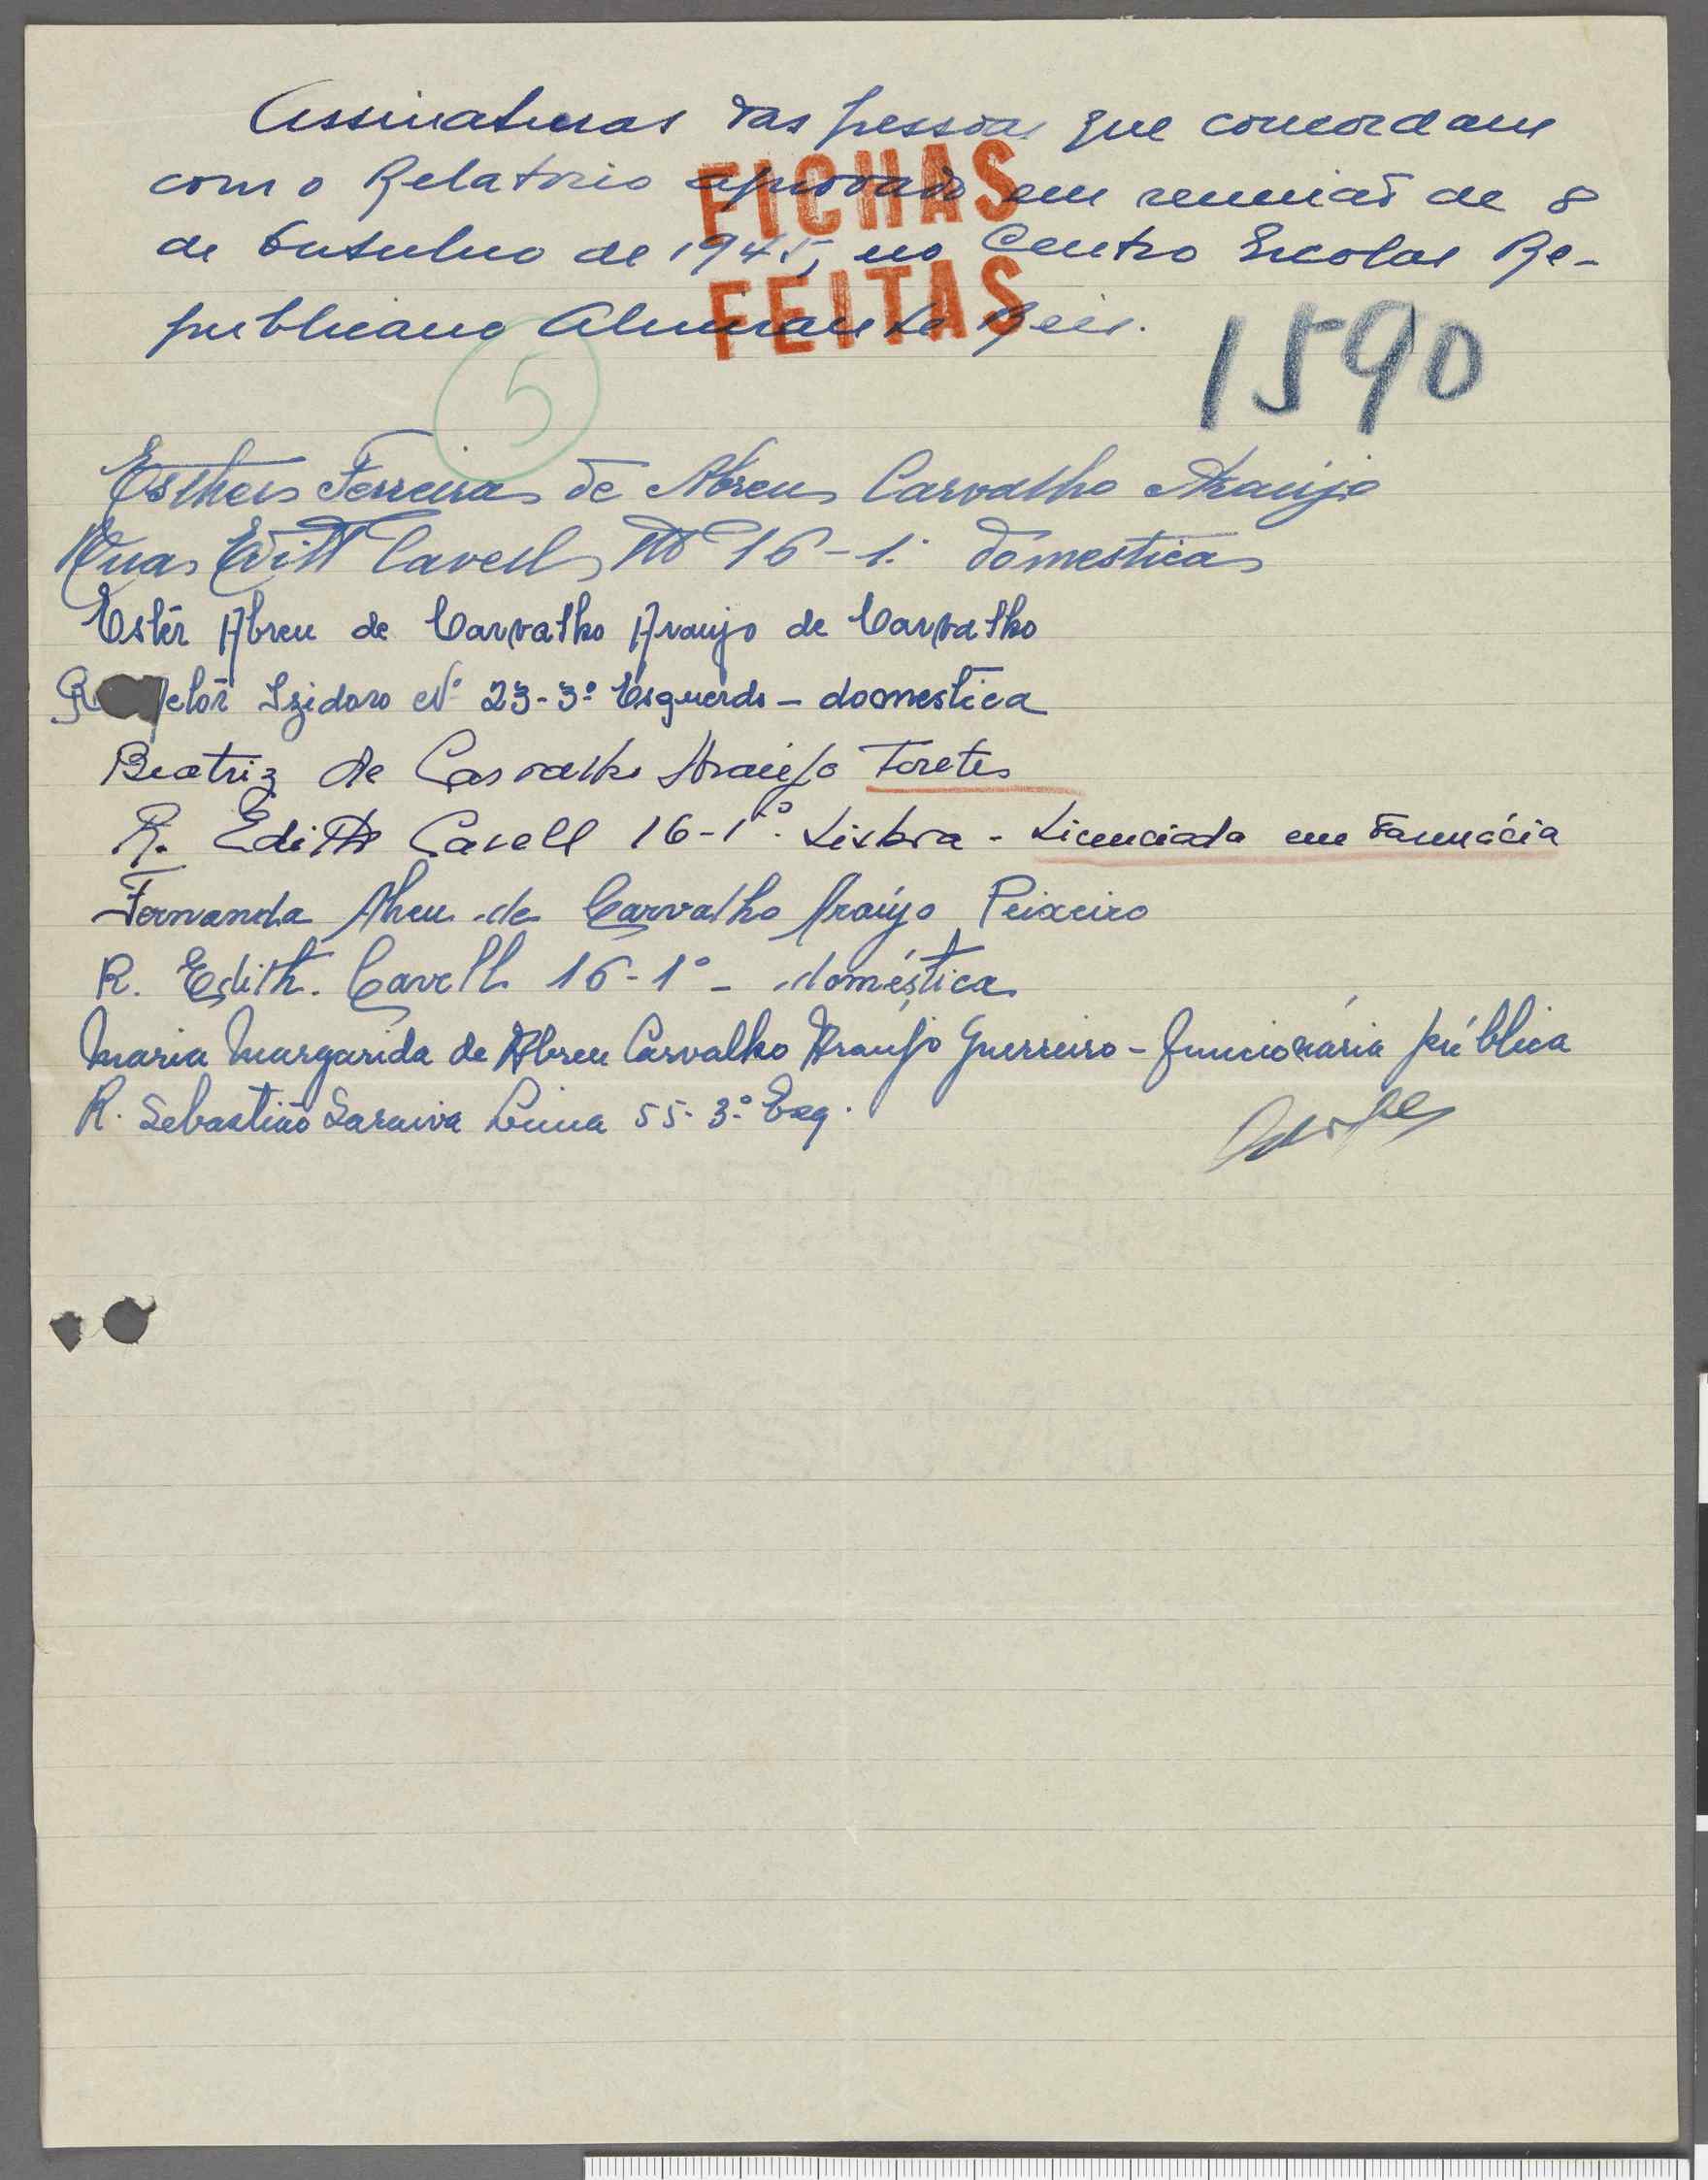 Assinaturas das pessoas que concordam
com o Relatorio aprovado em reunião de 8
de Outubro de 1945, no Centro Escolar Re-
publicano Almirante Reis.
FICHAS
FEITAS
1590
5
Esther Ferreira de Abreu Carvalho Araújo
Rua Edith Cavell, Nº 16-1.º domestica
Estêr Abreu de Carvalho Araujo de Carvalho
Izidoro Nº 23-3º Esquerdo - domestica
Beatriz de Carvalho Araújo Foretes
R. Edith Cavell 16-1º. Lisboa - Licenciada em Farmácia
Fernanda Abreu de Carvalho Araújo Peixeiro
R. Edith Cavell 16-1º - doméstica
Maria Margarida de Abreu Carvalho Araújo Guerreiro - funcionária pública
R. Sebastião Saraiva Lima 55-3º. Esq.